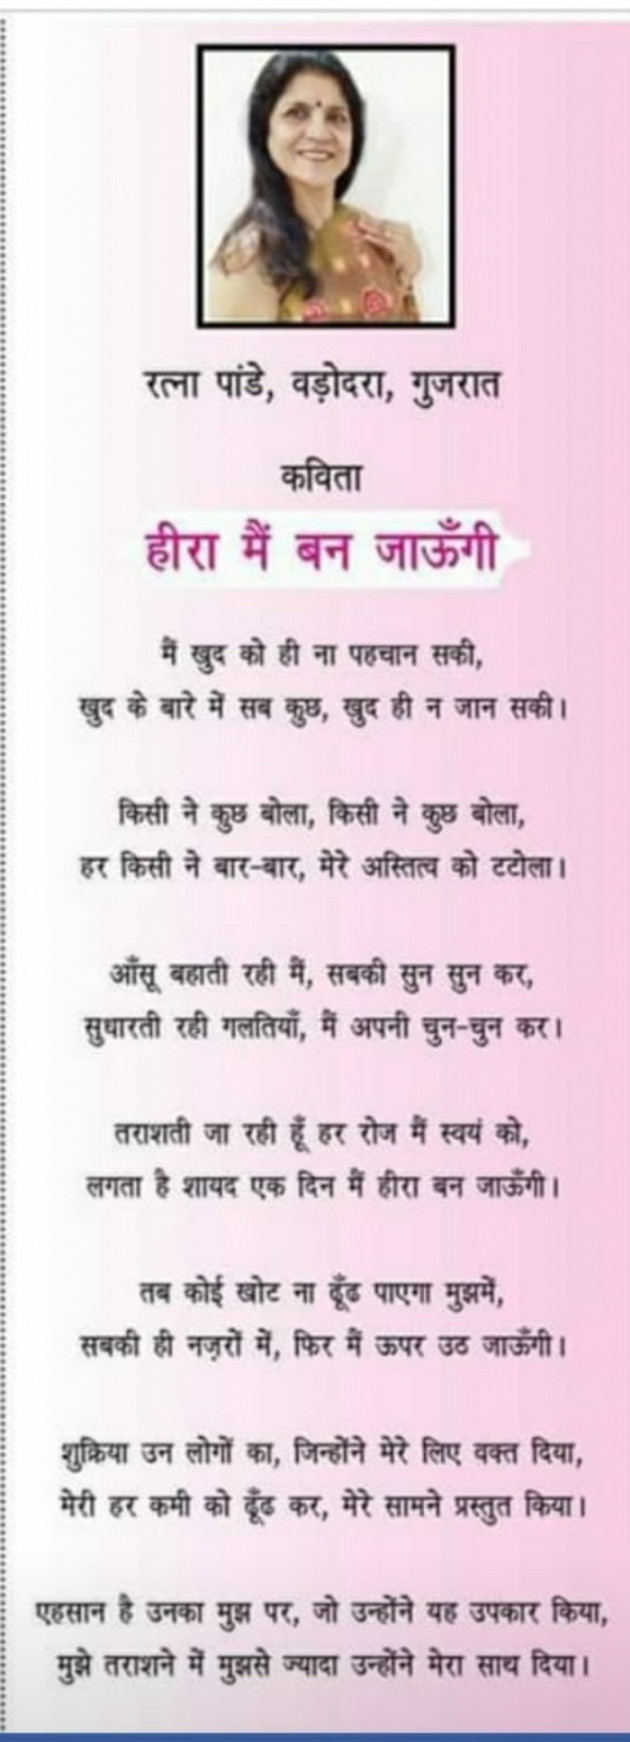 रत्ना पांडे, वड़ोदरा, गुजरात
कविता
हीरा मैं बन जाऊँगी
मैं खुद को ही ना पहचान सकी,
खुद के बारे में सब कुछ, खुद ही न जान सकी।
किसी ने कुछ बोला, किसी ने कुछ बोला,
हर किसी ने बार-बार, मेरे अस्तित्व को टटोला।
आँसू बहाती रही मैं, सबकी सुन सुन कर,
सुधारती रही गलतियाँ, मैं अपनी चुन-चुन कर।
तराशती जा रही हूँ हर रोज मैं स्वयं को,
लगता है शायद एक दिन मैं हीरा बन जाऊँगी।
तब कोई खोट ना ढूँढ पाएगा मुझमें,
सबकी ही नज़रों में, फिर मैं ऊपर उठ जाऊँगी।
शुक्रिया उन लोगों का, जिन्होंने मेरे लिए वक्त दिया,
मेरी हर कमी को ढूँढ कर, मेरे सामने प्रस्तुत किया।
एहसान है उनका मुझ पर, जो उन्होंने यह उपकार किया,
मुझे तराशने में मुझसे ज्यादा उन्होंने मेरा साथ दिया।